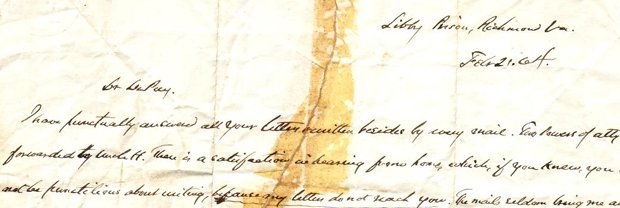 Libby Prison, Richmond Va.
Feb. 21. 64.
Dr DePuy.
I have punctually answered all your letters & written besides by every mail. Two Powers of atty
forwarded to Uncle H. There is a satisfaction in hearing from home, which, if you knew, you
not be punctilious about writing, because my letters do not reach you. The mails seldom bring me